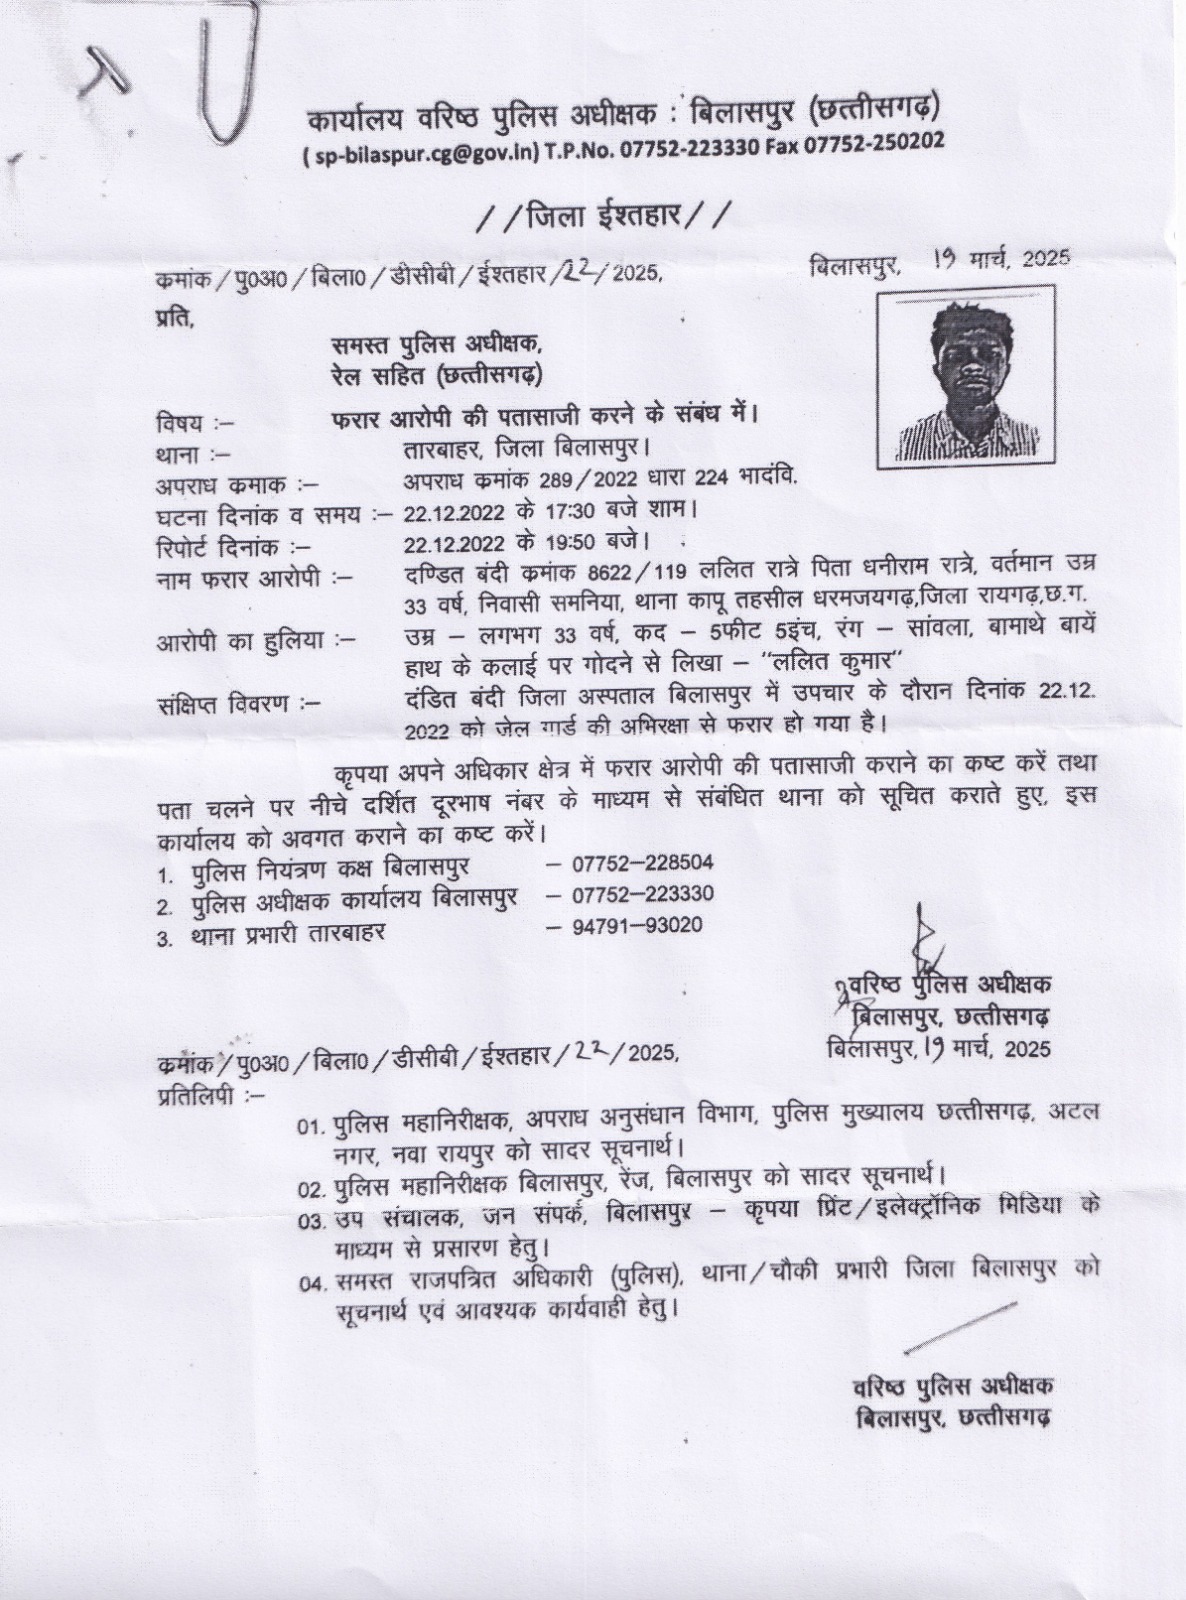 कार्यालय वरिष्ठ पुलिस अधीक्षक : बिलासपुर (छत्तीसगढ़)
( sp-bilaspur.cg@gov.in) T.P.No. 07752-223330 Fax 07752-250202
//जिला ईश्तहार//
कमांक/पु0अ0/बिला0/डीसीबी/ईश्तहार/22/2025,
बिलासपुर, 19 मार्च, 2025
प्रति,
समस्त पुलिस अधीक्षक,
रेल सहित (छत्तीसगढ़)
विषय :– फरार आरोपी की पतासाजी करने के संबंध में।
थाना :– तारबाहर, जिला बिलासपुर।
अपराध कमाक :– अपराध कमांक 289/2022 धारा 224 भादंवि.
घटना दिनांक व समय :– 22.12.2022 के 17:30 बजे शाम।
रिपोर्ट दिनांक :– 22.12.2022 के 19:50 बजे।
नाम फरार आरोपी :– दण्डित बंदी कमांक 8622/119 ललित रात्रे पिता धनीराम रात्रे, वर्तमान उम्र
33 वर्ष, निवासी समनिया, थाना कापू तहसील धरमजयगढ़,जिला रायगढ़,छ.ग.
आरोपी का हुलिया :– उम्र – लगभग 33 वर्ष, कद – 5फीट 5इंच, रंग – सांवला, बामाथे बायें
हाथ के कलाई पर गोदने से लिखा – "ललित कुमार"
संक्षिप्त विवरण :– दंडित बंदी जिला अस्पताल बिलासपुर में उपचार के दौरान दिनांक 22.12.
2022 को जेल गार्ड की अभिरक्षा से फरार हो गया है।
कृपया अपने अधिकार क्षेत्र में फरार आरोपी की पतासाजी कराने का कष्ट करें तथा
पता चलने पर नीचे दर्शित दूरभाष नंबर के माध्यम से संबंधित थाना को सूचित कराते हुए, इस
कार्यालय को अवगत कराने का कष्ट करें।
1. पुलिस नियंत्रण कक्ष बिलासपुर – 07752–228504
2. पुलिस अधीक्षक कार्यालय बिलासपुर – 07752–223330
3. थाना प्रभारी तारबाहर – 94791–93020
वरिष्ठ पुलिस अधीक्षक
बिलासपुर, छत्तीसगढ़
कमांक/पु0अ0/बिला0/डीसीबी/ईश्तहार/22/2025,
बिलासपुर,19 मार्च, 2025
प्रतिलिपी :–
01. पुलिस महानिरीक्षक, अपराध अनुसंधान विभाग, पुलिस मुख्यालय छत्तीसगढ़, अटल
नगर, नवा रायपुर को सादर सूचनार्थ।
02. पुलिस महानिरीक्षक बिलासपुर, रेंज, बिलासपुर को सादर सूचनार्थ।
03. उप संचालक, जन संपर्क, बिलासपुर – कृपया प्रिंट/इलेक्ट्रॉनिक मिडिया के
माध्यम से प्रसारण हेतु।
04. समस्त राजपत्रित अधिकारी (पुलिस), थाना/चौकी प्रभारी जिला बिलासपुर को
सूचनार्थ एवं आवश्यक कार्यवाही हेतु।
वरिष्ठ पुलिस अधीक्षक
बिलासपुर, छत्तीसगढ़